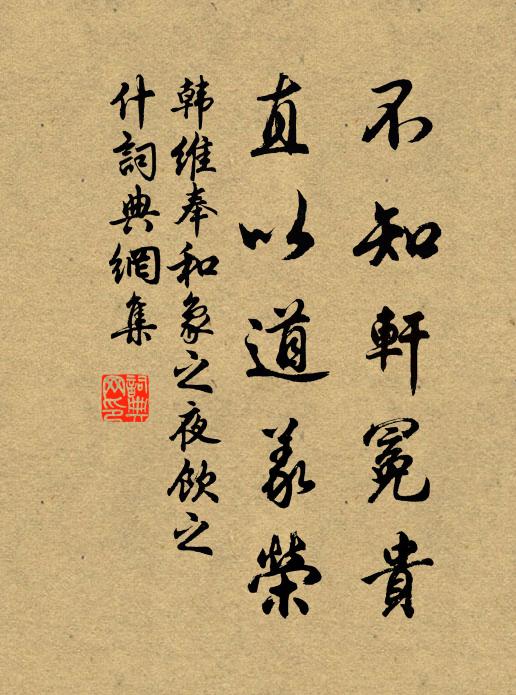 不知軒冕貴
直以道義榮
韩維奉和象之夜飲之
什詞典網集
詞典網印